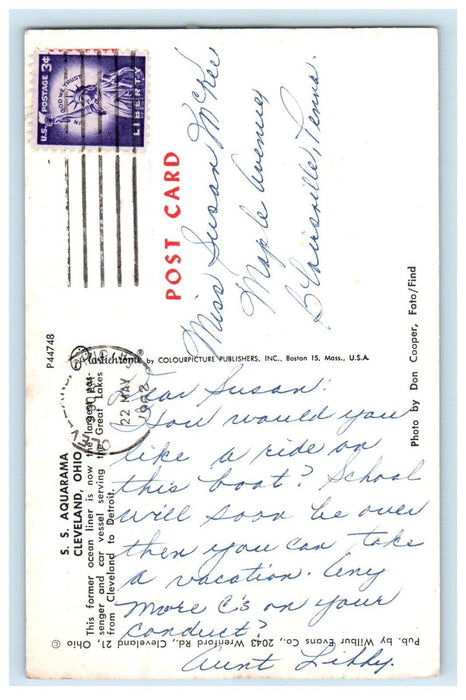 U.S. POSTAGE 3¢
IN GOD WE TRUST
LIBERTY
POST CARD
Miss Susan McKee
Maple Avenue
Blairsville, Penna.
P44748
Plastichrome® by COLOURPICTURE PUBLISHERS, INC., Boston 15, Mass., U.S.A.
22 MAY
1958
S. S. AQUARAMA
CLEVELAND, OHIO
This former ocean liner is now the largest pas-
senger and car vessel serving the Great Lakes
from Cleveland to Detroit.
Dear Susan:
You would you
like a ride on
this boat? School
will soon be over
then you can take
a vacation. Any
more C's on your
conduct?
Aunt Libby.
Photo by Don Cooper, Foto/Find
Pub. by Wilbur Evans Co., 2043 Wrenford Rd., Cleveland 21, Ohio ©